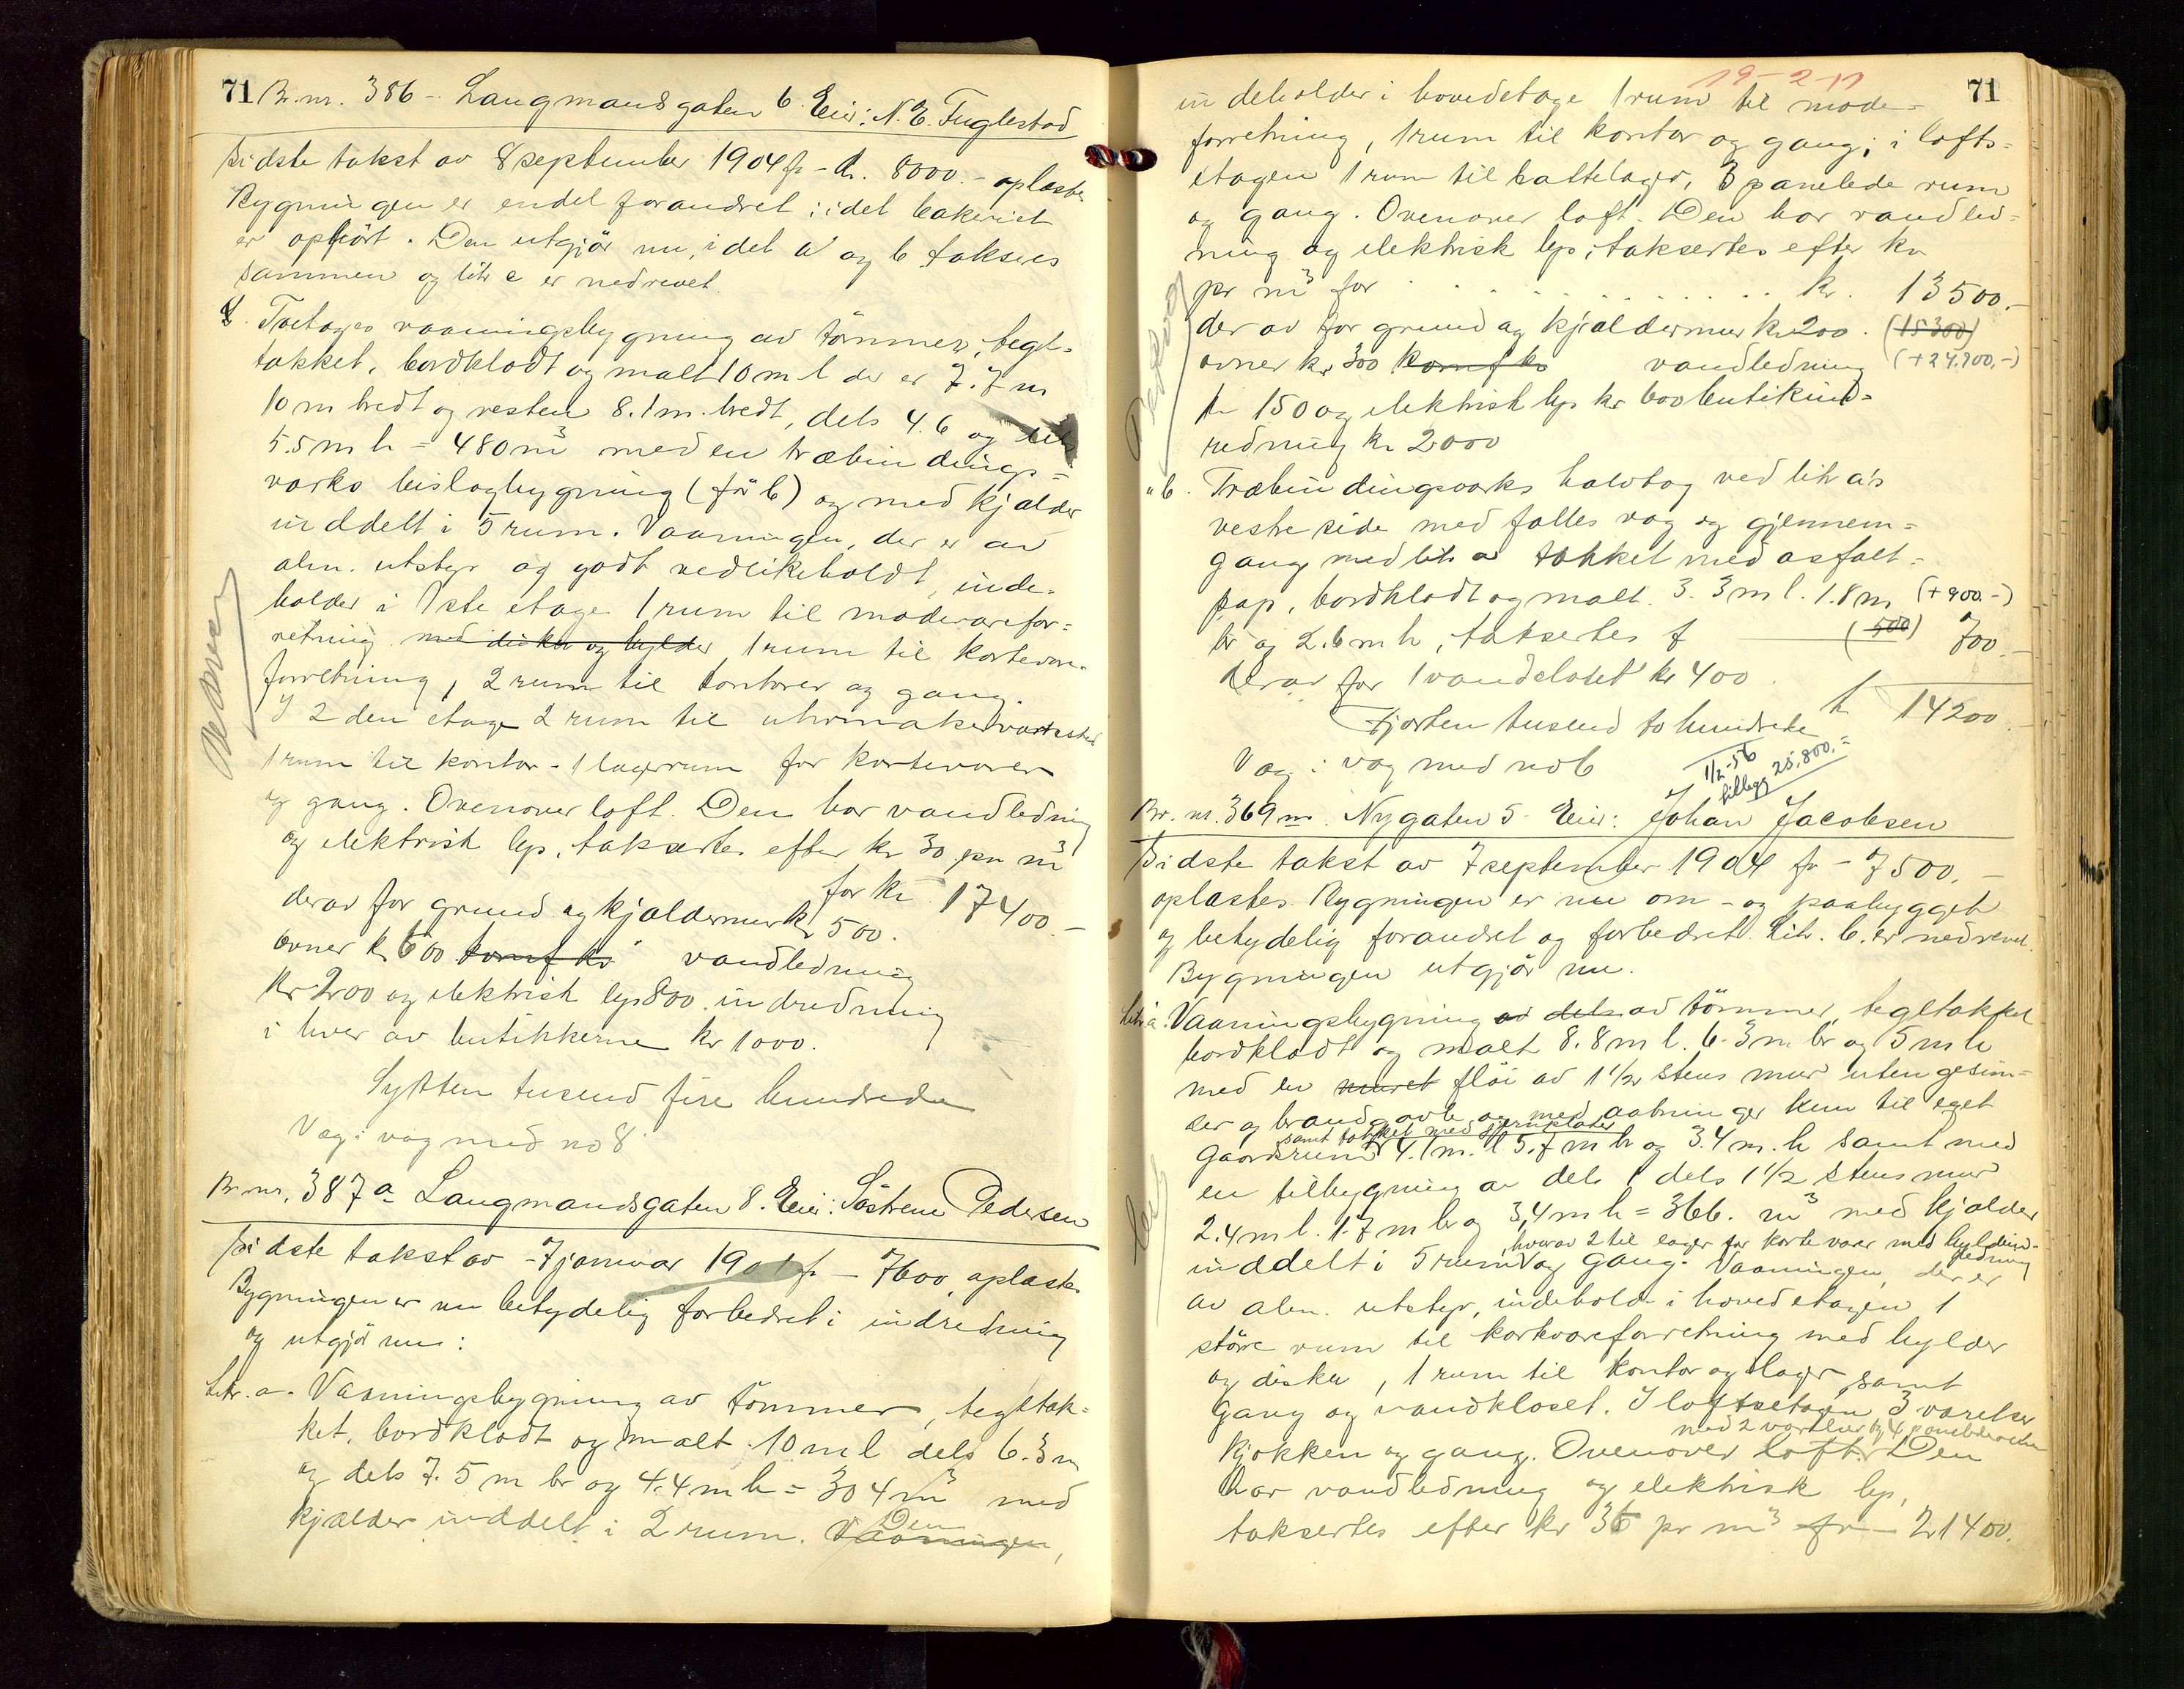 71 Br. nr. 386 - Langmandsgaten 6. Eier: N. E. Fuglestad
Sidste takst av 8 september 1904 fr - kr. 8000.- oplæstes
Bygningen er endel forandret; idet bakeriet
er ophört. Den utgjör nu, idet a og b takseres
sammen og litr c er nedrevet.
Toetages vaaningsbygning av tömmer, tegl-
takket, bordklædt og malt 10 m l der er 7.7 m
10 m bredt og resten 8.1 m. bredt, dels 4.6 og
5.5 m h = 480 m³ med en træbindings-
verks bislagbygning (för b) og med kjælder
inddelt i 5 rum. Vaaningen, der er av
alm. utstyr og godt vedlikeholdt, inde-
holder i 1ste etage 1 rum til modevarefor-
retning med diske og hylder 1 rum til kortevare-
forretning, 2 rum til kontorer og gang.
I 2den etage 2 rum til uhrmakerverksted
1 rum til kontor - 1 lagerrum for kortevarer
og gang. Ovenover loft. Den har vandledning
og elektrisk lys, taksertes efter kr 30 pr m³
for kr 17400.-
derav for grund og kjældermur kr 500.
ovner kr 600 komf kr vandledning
kr 200 og elektrisk lys 800. indredning
i hver av butikkerne kr 1000.
Sytten tusend fire hundrede
Væg: væg med no 8
Br. nr. 387a Langmandsgaten 8. Eier: Söstrene Pedersen
Sidste takst av 7 januar 1901 fr - 7600, oplæstes
Bygningen er nu betydelig forbedret i indredning
og utgjör nu:
Litr. a. Vaaningsbygning av tömmer, tegltak-
ket, bordklædt og malt 10 m l dels 6.3 m
og dels 7.5 m br og 4.4 m h = 304 m³ med
kjælder inddelt i 2 rum. Vaaningen, Den
19-2-17
71
indeholder i hovedetage 1 rum til mode-
forretning, 1 rum til kontor og gang; i lofts-
etagen 1 rum til hattelager, 3 panelede rum
og gang. Ovenover loft. Den har vandled-
ning og elektrisk lys; taksertes efter kr
pr m³ for . . . . . . . . . kr. 13500.-
derav for grund og kjældermur kr 200. (15300)
ovner kr 300 komf kr vandledning (+24.900,-)
kr 150 og elektrisk lys kr 600 butikind-
redning kr 2000
" b. Træbindingsverks halvtag ved litr a's
vestre side med fælles væg og gjennem-
gang med litr a takket med asfalt-
pap, bordklædt og malt. 3.3 m l. 1.8 m (+900.-)
br og 2.6 m h, taksertes f (500) 700.-
derav for 1 vandcloset kr 400.
Fjorten tusend to hundrede kr 14200.-
Væg: væg med no 6
1/2-56
tillegg 25.800,=
Br. nr. 369 m. Nygaten 5 Eier: Johan Jacobsen
Sidste takst av 7 september 1904 fr - 7500,-
oplæstes. Bygningen er nu om- og paabygget
og betydelig forandret og forbedret. Litr. b. er nedrevet.
Bygningen utgjör nu.
Litr a. Vaaningsbygning av dels av tömmer, tegltakket
bordklædt og malt 8.8 m l. 6.3 m br og 5 m h
med en muret flöi av 1 1/2 stens mur uten gesim-
ser og brandgavle og med aabninger kun til eget
samt takket med jernplater
gaardsrum 4.1 m. l 5.7 m br og 3.4 m. h samt med
en tilbygning av dels 1 dels 1 1/2 stens mur
2.4 m l. 1.7 m br og 3,4 m h = 366. m³ med kjælder
, hvorav 2 til lager for kortevarer med hyldeind-
redning
inddelt i 5 rum og gang. Vaaningen, der er
av alm. utstyr, indehold. i hovedetagen 1
större rum til kortvareforretning med hylder
og diske, 1 rum til kontor og lager samt
gang og vandkloset. I loftsetagen 3 værelser
kjökken og gang. Ovenover loft. Den
har vandledning og elektrisk lys,
taksertes efter kr 36 pr m³ fr - 21400.